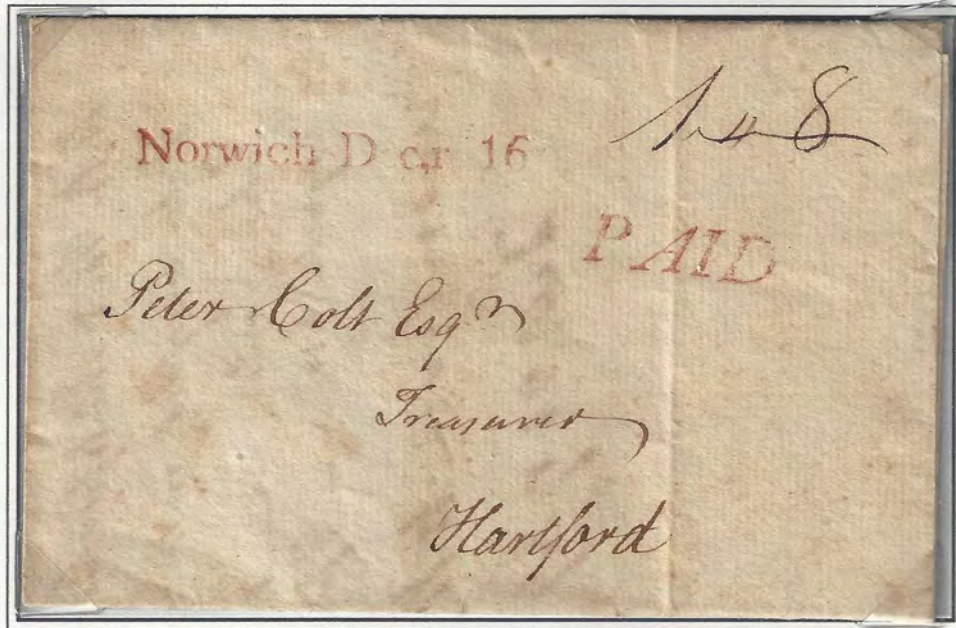 Norwich D c,r 16
8
PAID
Peter Colt Esqr
Treasurer
Hartford